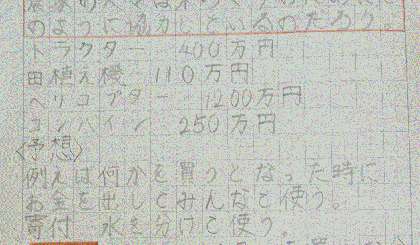 のように協力しているのだろう。
トラクター 400万円
田植え機 110万円
ヘリコプター 1200万円
コンバイン 250万円
〈予想〉
例えば何かを買うとなった時に
お金を出してみんなで使う。
寄付 水を分けて使う。